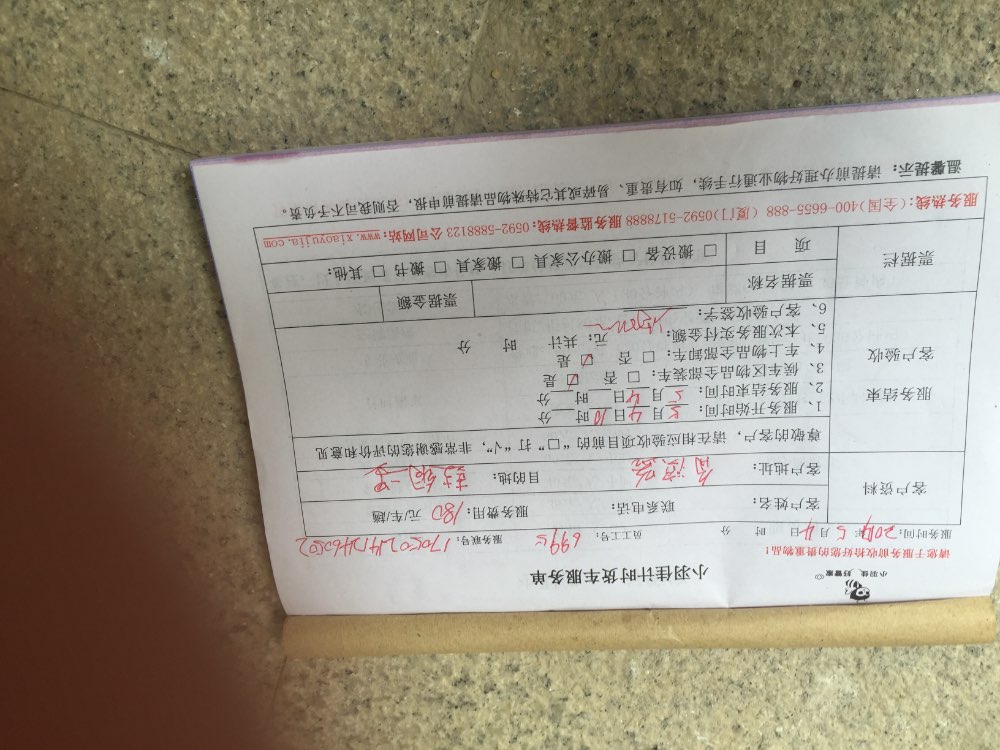 小羽佳 好管家
小羽佳计时货车服务单
请您于服务前收拾好您的贵重物品！
服务时间： 年 5 月 4 日 时 分 员工号： 服务联号：
客户资料
客户姓名： 联系电话： 服务费用：180 元/车/趟
客户地址： 目的地：
尊敬的客户，请在相应验收项目前的“□”打“√”，非常感谢您的评价和意见
服务结束
客户验收
1、服务开始时间：5月4日10时 分
2、服务结束时间：5月4日 时 分
3、候车区物品全部装车：□ 否 ☑ 是
4、车上物品全部卸车：□ 否 ☑ 是
5、本次服务实付金额： 元；共计 时 分
6、客户验收签字：
票据栏
票据名称 票据金额
项目 □ 搬设备 □ 搬办公家具 □ 搬家具 □ 搬书 □ 其他：
服务热线：(全国)400-6655-888 (厦门)0592-5178888 服务监督热线：0592-5888123 公司网站：www.xiaoyujia.com
温馨提示：请提前办理好物业通行手续，如有贵重、易碎或其它特殊物品需请提前申报，否则我司不予负责。